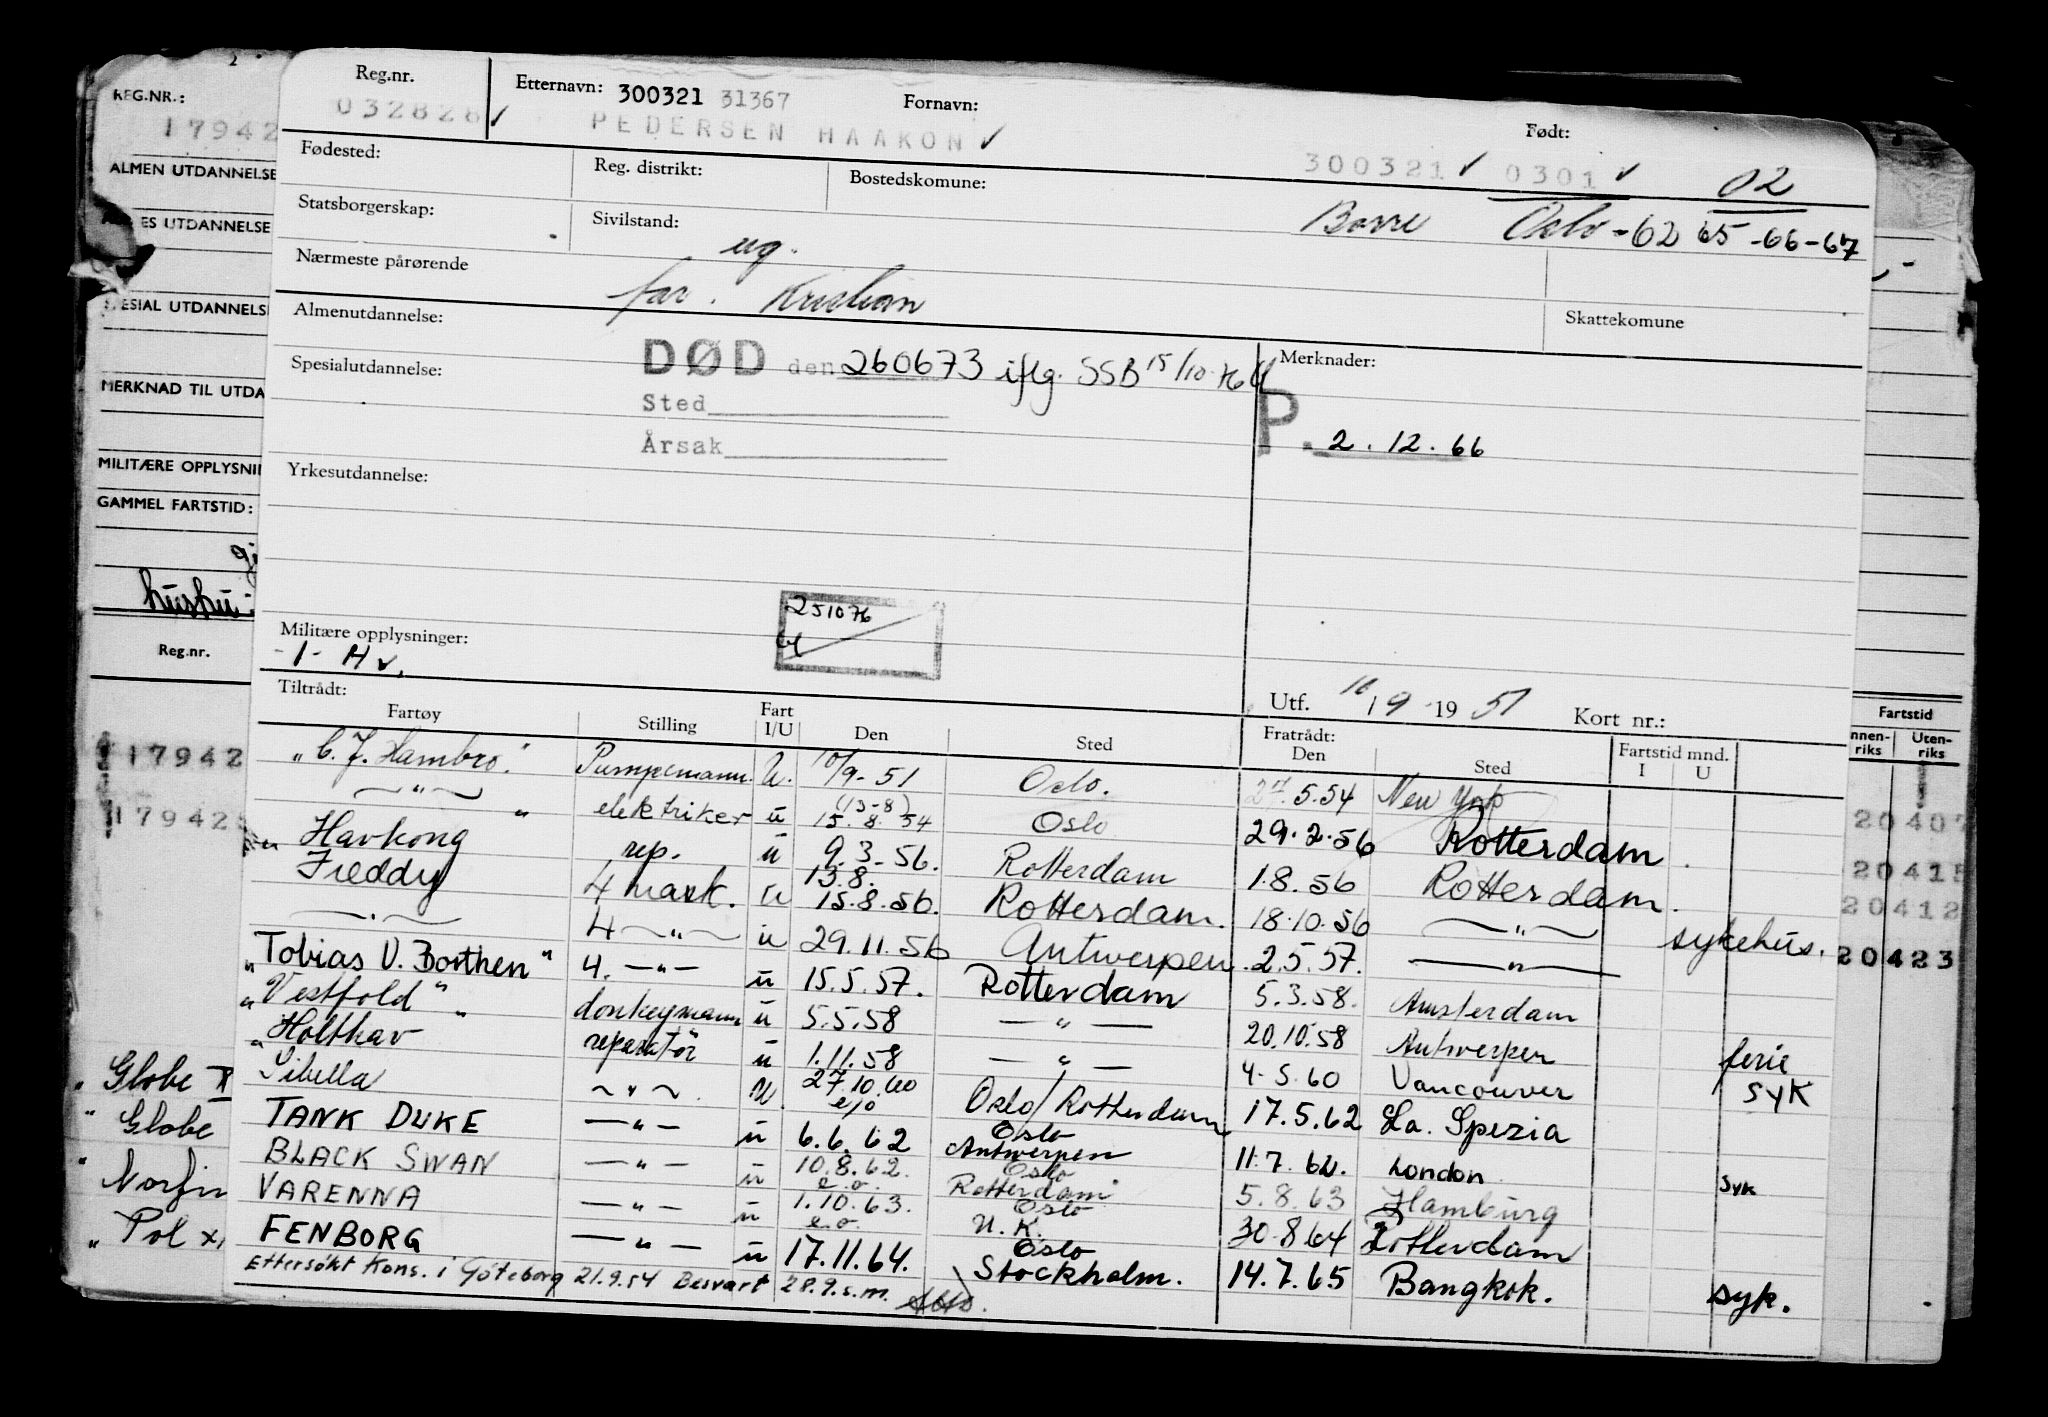 2
REG.NR.:
17942
ALMEN UTDANNELSE
ES UTDANNELSE
ESIAL UTDANNELSE
MERKNAD TIL UTDA
MILITÆRE OPPLYSNI
GAMMEL FARTSTID:
hushu
Reg.nr.
17942
17942
Globe
Globe
Norfin
Pol
Reg.nr. Etternavn: 300321 31367 Fornavn: Født:
032828 ✓ PEDERSEN HAAKON ✓ 300321 ✓ 0301 ✓ 02
Fødested: Reg. distrikt: Bostedskomune:
Borre Oslo -62 65 -66-67
Statsborgerskap: Sivilstand: ug.
Nærmeste pårørende far. Kristian
Almenutdannelse: Skattekomune
DØD den 260673 iflg. SSB 15/10-76
Spesialutdannelse: Merknader:
Sted
Årsak
P. 2.12.66
Yrkesutdannelse:
251076
Militære opplysninger:
-1- Hv.
Tiltrådt: Utf. 10/9-1951 Kort nr.:
Fartøy Stilling Fart I/U Den Sted Fratrådt: Den Sted Fartstid mnd. I U
"C. J. Hambro." Pumpemann. U. 10/9-51 Oslo. 27.5.54 New York
—"— elektriker u (13-8) 15.8 54 Oslo 29.2.56 Rotterdam.
Havkong rep. u 9.3.56. Rotterdam 1.8.56 Rotterdam.
Freddy 4 mask. u 13.8. 15.8.56. Rotterdam. 18.10.56 —"— sykehus.
—"— 4 —"— u 29.11.56 Antwerpen. 2.5.57. —"—
"Tobias U. Borthen" 4. —"— u 15.5.57. Rotterdam 5.3.58. Amsterdam
"Vestfold" donkeymann u 5.5.58 —"— 20.10.58 Antwerpen ferie
"Holthav reparatør u 1.11.58 —"— 4.5.60 Vancouver syk
"Sibella —"— U. 27.10.60 e/o Oslo/Rotterdam 17.5.62 La. Spezia
TANK DUKE —"— u 6.6.62 Oslo Antwerpen 11.7.62. London syk
BLACK SWAN —"— u 10.8.62. e.o. Oslo Rotterdam 5.8.63 Hamburg
VARENNA —"— u 1.10.63. e.o. Oslo U.K. 30.8 64 Rotterdam
FENBORG —"— u 17.11.64. Oslo Stockholm. 14.7.65 Bangkok. syk.
Ettersøkt Kons. i Göteborg 21.9.54 Besvart 28.9.s.m.
Fartstid
nnen-riks Uten-riks
20407
20415
20412
20423